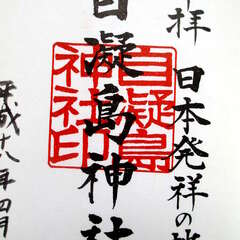 拝 日本発祥の地
自凝島神社
自凝島神社印
平成十八年四月